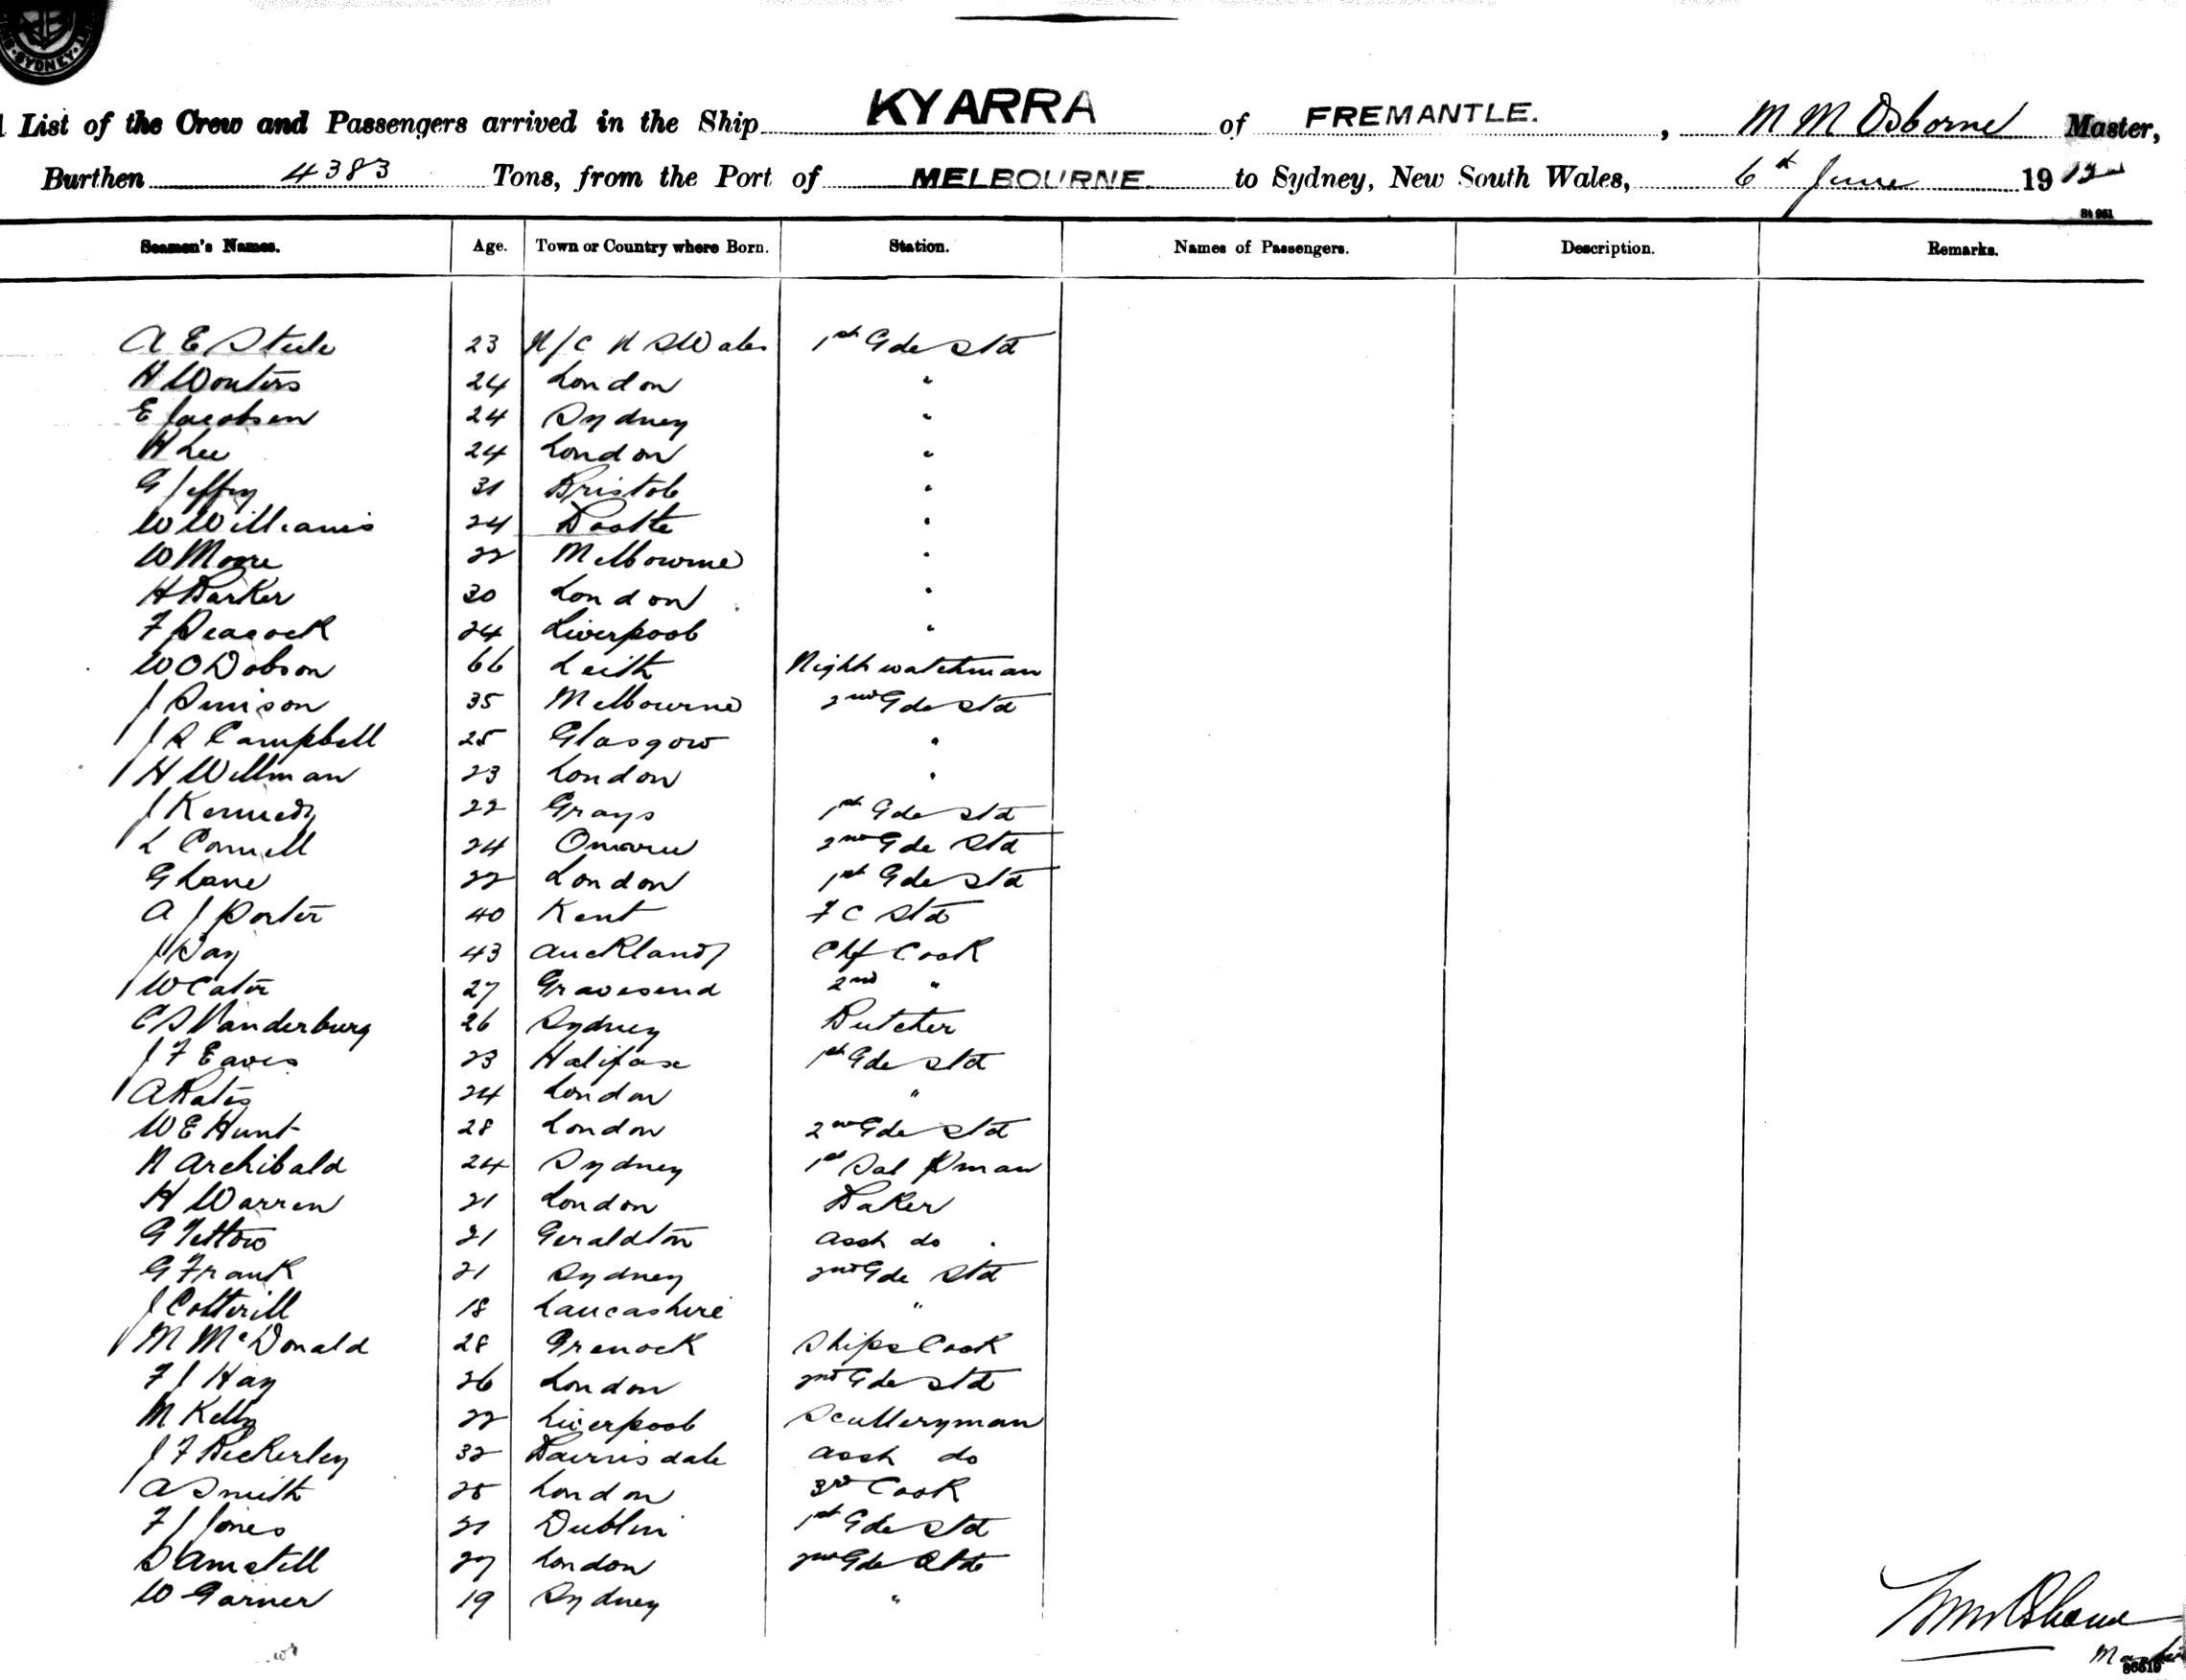 SYDNEY
List of the Crew and Passengers arrived in the Ship KYARRA of FREMANTLE. , M M Osborne Master,
Burthen 4383 Tons, from the Port of MELBOURNE to Sydney, New South Wales, 6th June 1912
St 951
Seamen's Names. Age. Town or Country where Born. Station. Names of Passengers. Description. Remarks.
A E Steele 23 N/C N S Wales 1st Gde Std
H Wouters 24 London "
E Jacobsen 24 Sydney "
H Lee 24 London "
G Jeffery 31 Bristol "
W Williams 24 Bootle "
W Moore 22 Melbourne "
H Barker 30 London "
F Peacock 24 Liverpool "
W O Dobson 66 Leith Night watchman
J Simison 35 Melbourne 2nd Gde Std
J R Campbell 25 Glasgow "
H Willman 23 London "
J Kennedy 22 Grays 1st Gde Std
L Connell 24 Omaru 2nd Gde Std
G Lane 22 London 1st Gde Std
A J Porter 40 Kent F C Std
J Day 43 Auckland Chf Cook
W Cater 27 Gravesend 2nd "
C S Vanderburg 26 Sydney Butcher
J F Eaves 23 Halifax 1st Gde Std
A Bates 24 London "
W E Hunt 28 London 2nd Gde Std
N Archibald 24 Sydney 1st Sal Pman
H Warren 21 London Baker
G Tettow 21 Geraldton Asst do
G Frank 21 Sydney 2nd Gde Std
J Cotterill 18 Lancashire "
M McDonald 28 Grenock Ships Cook
F J Hay 26 London 2nd Gde Std
M Kelly 22 Liverpool Sculleryman
J F Beckerley 32 Bairnisdale Asst do
A Smith 25 London 3rd Cook
F J Jones 21 Dublin 1st Gde Std
S Amstell 27 London 2nd Gde Std
W Garner 19 Sydney "
M M Osborne
86519